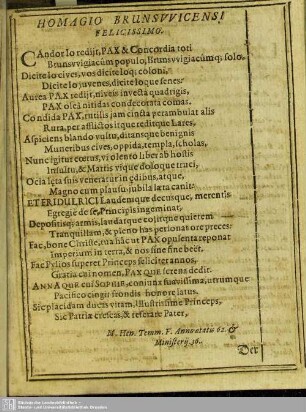 HOMAGIO BRUNSVVICENSI
FELICISSIMO.
CAndor Io redijt, PAX & Concordia toti
Brunsvvigiacûm populo, Brunsvvigiacûmq; solo,
Dicite Io cives, vos dicite Ioq; coloni,
Dicite Io juvenes, dicite Ioque senes:
Aurea PAX redijt, niveis invecta quadrigis,
PAX oleâ nitidas condecorata comas.
Condida PAX, rutilis jam cincta perambulat alis
Rura, per afflictos itque reditque Lares,
Aspiciens blando vultu, ditansque benignis
Muneribus cives, oppida, templa, scholas,
Nunc igitur cœtus, violento liber ab hostis
Insultu, & Martis vique doloque truci,
Ocia læta suis veneratur in ædibus, atque,
Magno cum plausu jubila læta canit:
ET ERIDULRICI Laudemque decusque, merentis
Egregiè de se, Principis ingeminat,
Depositisq; armis, laudatque colitque quietem
Tranquillam, & pleno has personat ore preces:
Fac, bone Christe, tua hâc ut PAX opulenta reponat
Imperium in terra, & nos sine fine beet.
Fac Pylios superet Princeps feliciter annos,
Gratia cui nomen, PAXQUE serena dedit.
ANNAQUE cui SOPHIE, coniunx suavissima, utrumque
Pacifico cingit frondis honore latus.
Sic placidam ducas vitam, Illustrissime Princeps,
Sic Patriæ crescas, & referare Pater,
M. Hen. Temm. F. Anno ætatis 62. &
Ministerij. 36.
Der